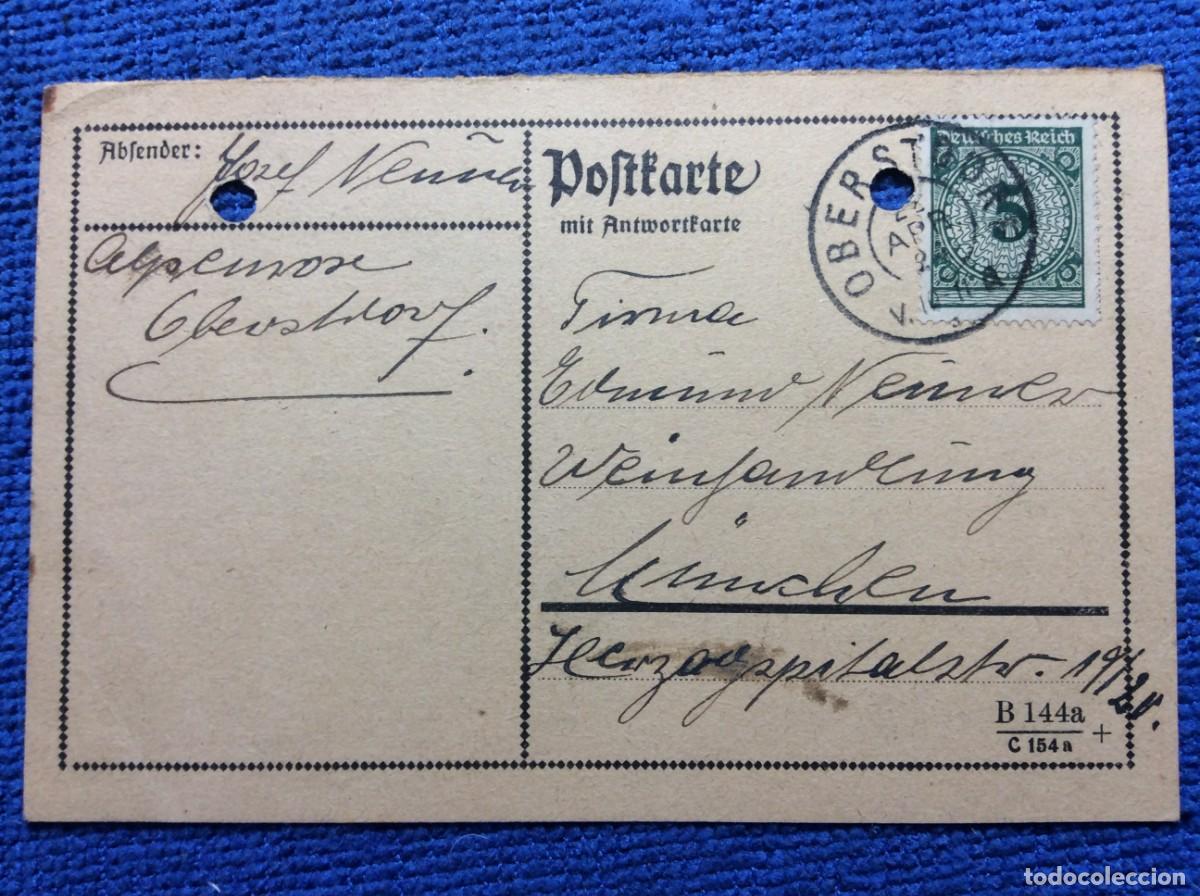 Absender: Josef Neuner
Alpenrose
Oberstdorf.
Postkarte
mit Antwortkarte
OBERSTDORF
APR
Deutsches Reich
5
Firma
Edmund Neuner
Weinhandlung
München
Herzogspitalstr. 19/20.
B 144a
C 154a +
todocoleccion